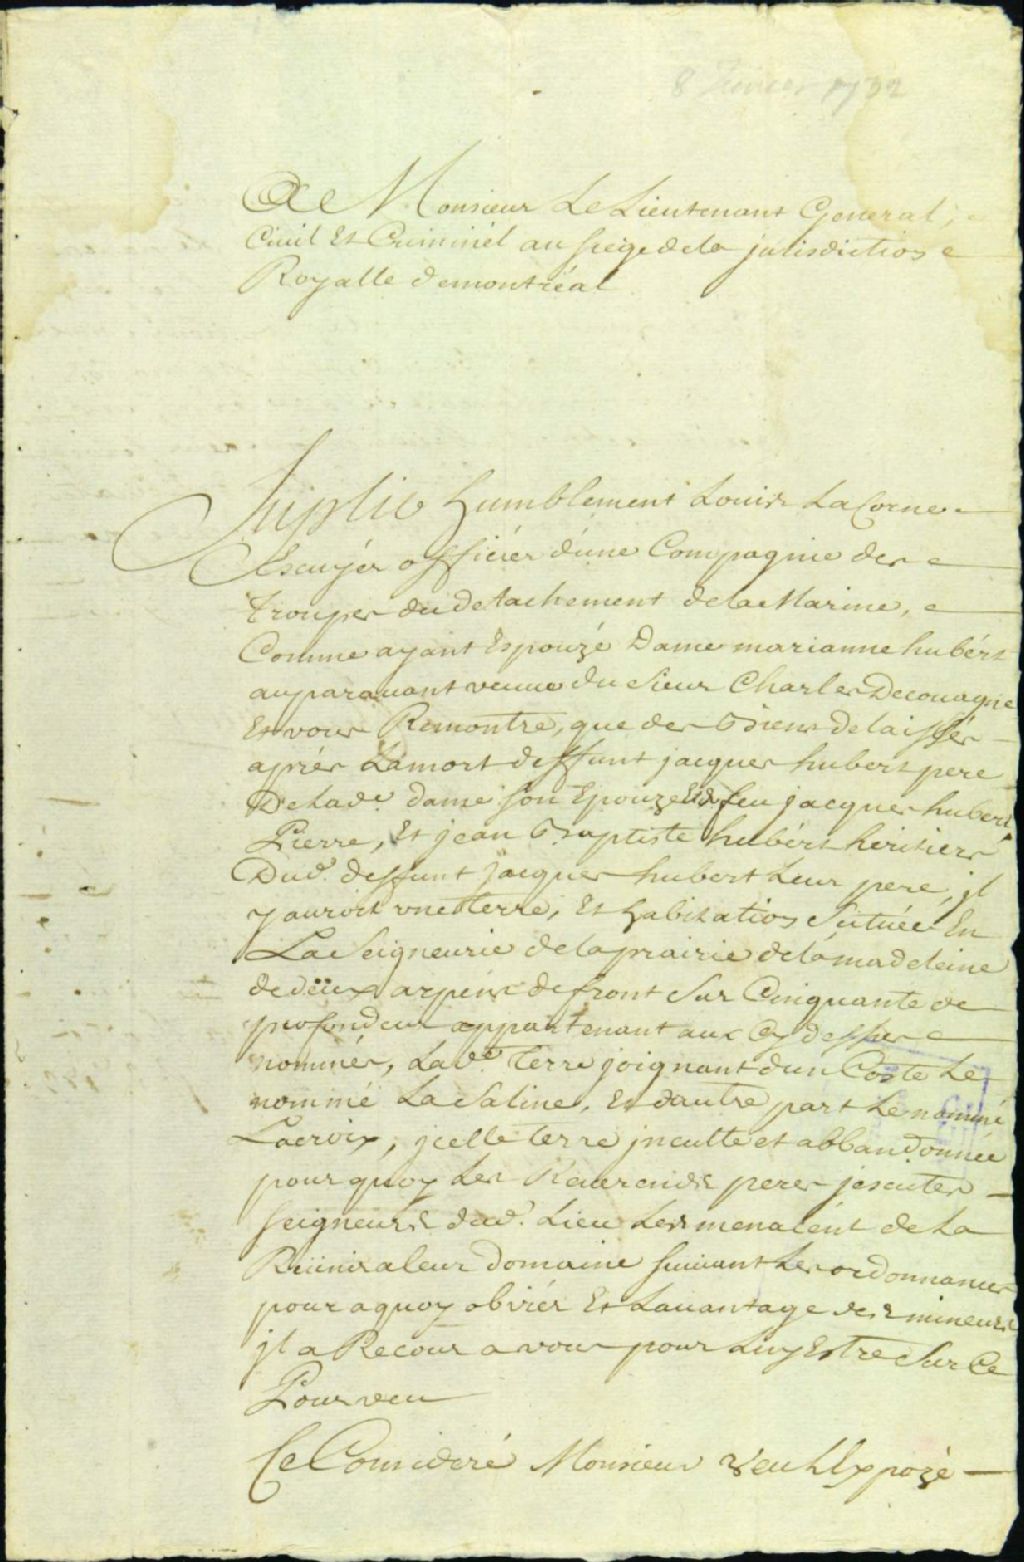 8 Janvier 1732
A Monsieur Le Lieutenant General,
Ciuil Et Criminel au siege de la jurisdiction
Royalle de montréal
Suplie humblement Louis LaCorne
Escuyér officiér dune Compagnie des
Troupes du detachement de la Marine,
Comme ayant Espouzé Dame marianne hubért
auparauant veuue du sieur Charles Decouagne
Et vous Remontre, que des Biens delaissés
aprés Lamort deffunt jacques hubert pere
De lade dame son Epouze Et de feu jacques hubert
Pierre, Et jean Baptiste hubért heritiers
Dud. deffunt Jacques hubert Leur pere, jl
y auroit vne terre, Et habitation Scituée En
La Seigneurie de la prairie de la madeleine
de deüx arpens de front sur Cinquante de
profondeur appartenant aux Cy dessus
nommés, Lade Terre joignant dun Coste Le
nommé La Saline, Et dautre part Le nommé
Lacroix, jcelle terre jnculte et abbandonnée
pour quoy Les Reuerends peres jesuites
seigneurs dud. Lieu Les menacent de La
Reünir a leur Domaine suiuant Les ordonnances
pour a quoy obviér Et Lauantage des mineurs
jl a Recours a vous pour Luy Estre Sur Ce
Pourveu
Ce Consideré Monsieur veu LExpozé